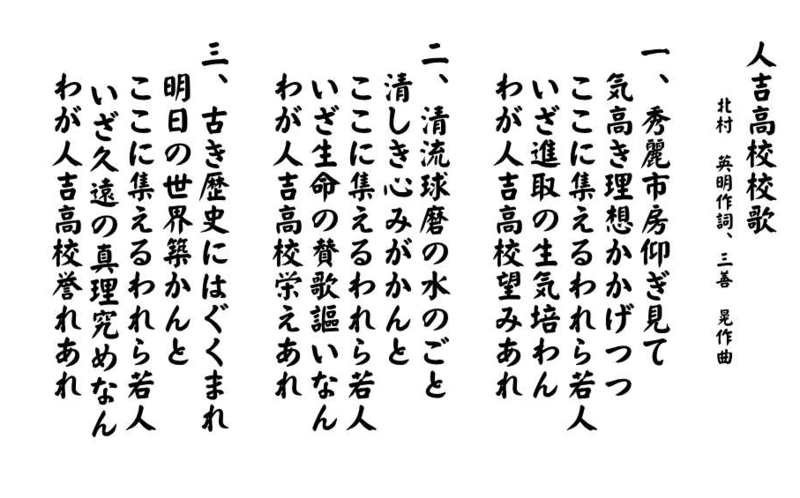 人吉高校校歌
北村　英明作詞、三善　晃作曲
一、秀麗市房仰ぎ見て
気高き理想かかげつつ
ここに集えるわれら若人
いざ進取の生気培わん
わが人吉高校望みあれ
二、清流球磨の水のごと
清しき心みがかんと
ここに集えるわれら若人
いざ生命の賛歌謳いなん
わが人吉高校栄えあれ
三、古き歴史にはぐくまれ
明日の世界築かんと
ここに集えるわれら若人
いざ久遠の真理究めなん
わが人吉高校誉れあれ